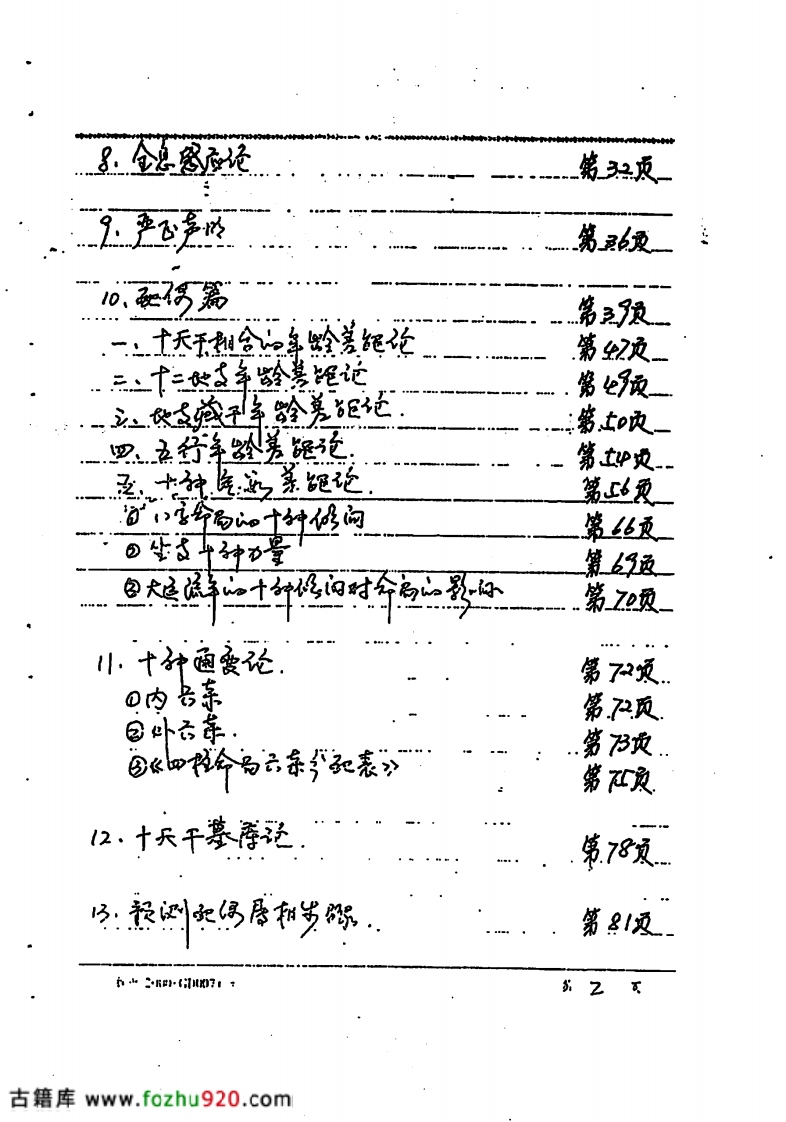 8、全息感应论 第32页
9、严正声明 第36页
10、配偶篇 第39页
一、十天干相合的年龄差距论 第47页
二、十二地支年龄差距论 第49页
三、地支藏干年龄差距论. 第50页
四、五行年龄差距论. 第54页
五、十神 差距论. 第56页
① 八字命局的十神倾向 第66页
② 坐支十神力量 第69页
③ 大运流年的十神倾向对命局的影响 第70页
11、十神通变论. 第72页
①内六亲 第72页
②外六亲. 第73页
③《四柱命局六亲分配表》 第75页
12、十天干墓库论. 第78页
13、预测配偶属相步骤. 第81页
第 2 页
古籍库 www.fozhu920.com